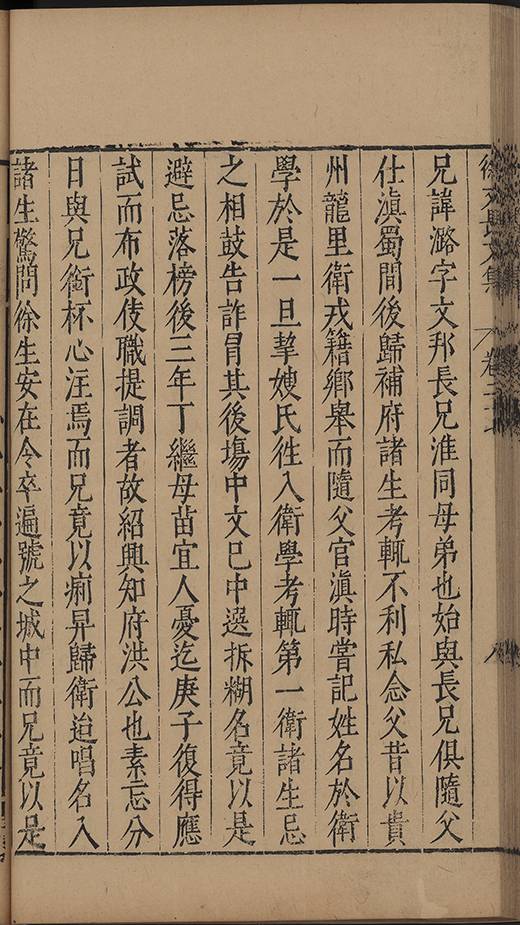 徐文長文集 卷二十七 八
兄諱潞字文邦長兄淮同母弟也始與長兄俱隨父
仕滇蜀間後歸補府諸生考輒不利私念父昔以貴
州龍里衛戎籍鄉舉而隨父官滇時嘗記姓名於衛
學於是一旦挈嫂氏徃入衛學考輒第一衛諸生忌
之相鼓告詐冐其後塲中文已中選拆糊名竟以是
避忌落榜後三年丁繼母苗宜人憂迄庚子復得應
試而布政使職提調者故紹興知府洪公也素忘分
日與兄銜杯心注焉而兄竟以痢舁歸衛迨唱名入
諸生驚問徐生安在令卒遍號之城中而兄竟以是